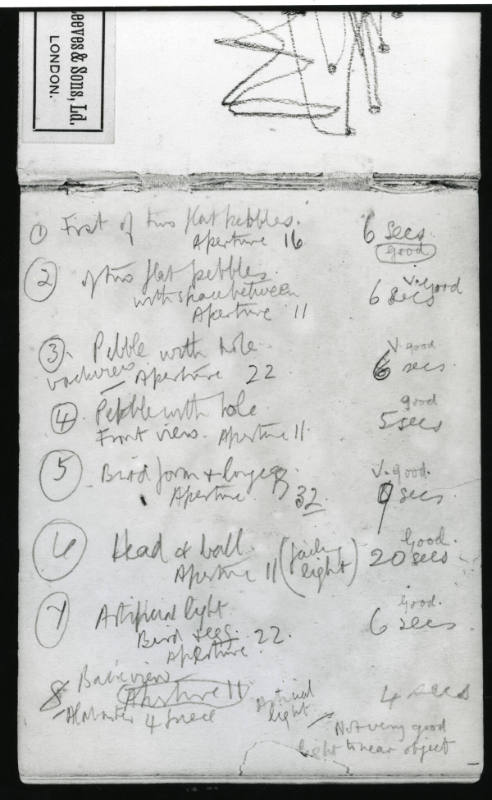 Reeves & Sons, Ld.
LONDON.
1 First of two flat pebbles. 6 secs
Aperture 16 good
2 of two flat pebbles v. good
with space between 6 secs
Aperture 11
3. Pebble with hole v. good
backview Aperture 22 6 secs
4 Pebble with hole good
Front view. Aperture 11 5 secs
5 Bird form & v. good.
Aperture 32 secs
6 Head & ball Good.
Aperture 11 (light) 20 secs
7 Artificial light Good.
Bird & egg 22. 6 secs
Aperture
8 Back view
Aperture 11 4 secs
Alabaster 4 piece light
Not very good
light to near object